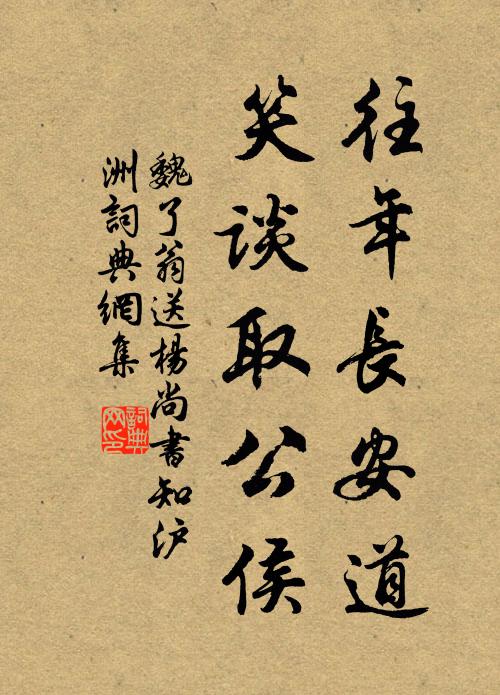 往年長安道
笑談取公侯
魏了翁送楊尚書知泸
洲詞典網集
詞典
网印